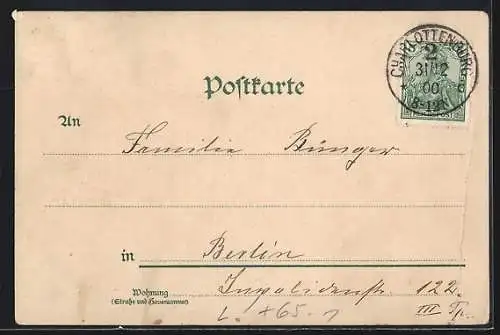 CHARLOTTENBURG
2
31 12
00
8-12N
* c
Postkarte
An
Familie Bünger
in Berlin
Wohnung
(Straße und Hausnummer)
Invalidenstr 122.
III Tr.